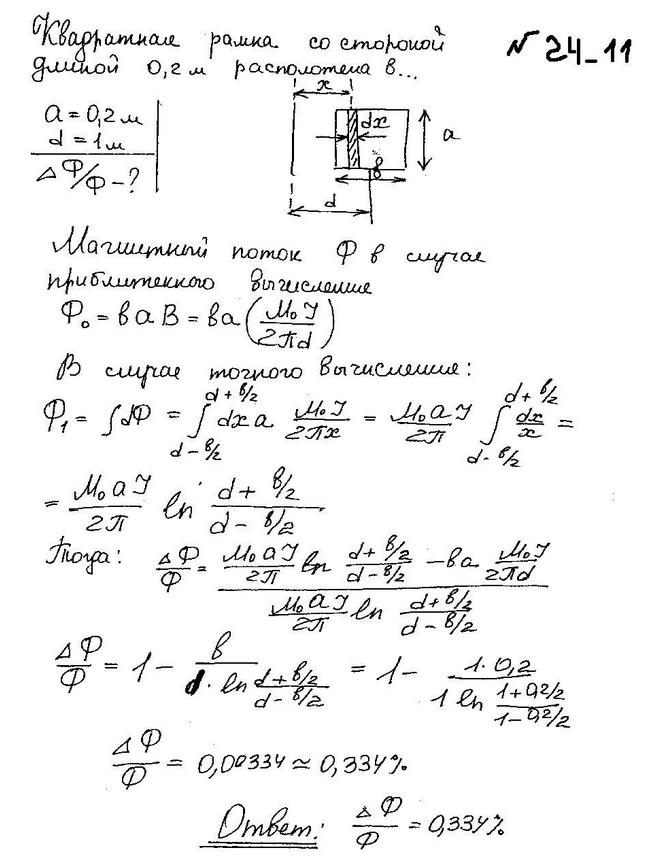 Квадратная рамка со стороной № 24_11
длиной 0,2 м расположена в...
a = 0,2 м
d = 1 м
ΔΦ/Φ - ?
x
dx
a
в
d
Магнитный поток Φ в случае
приближенного вычисление
Φ₀ = в a B = вa (M₀ I / 2Пd)
В случае точного вычисление:
Φ₁ = ∫dΦ = ∫_{d-в/2}^{d+в/2} dx a M₀I/2Пx = M₀aI/2П ∫_{d-в/2}^{d+в/2} dx/x =
= M₀aI/2П ln (d+в/2)/(d-в/2)
Тогда: ΔΦ/Φ = (M₀aI/2П ln (d+в/2)/(d-в/2) - вa M₀I/2Пd) / (M₀aI/2П ln (d+в/2)/(d-в/2))
ΔΦ/Φ = 1 - в/(d · ln (d+в/2)/(d-в/2)) = 1 - 1·0,2/(1 ln (1+0,2/2)/(1-0,2/2))
ΔΦ/Φ = 0,00334 ≈ 0,334%
Ответ: ΔΦ/Φ = 0,334%